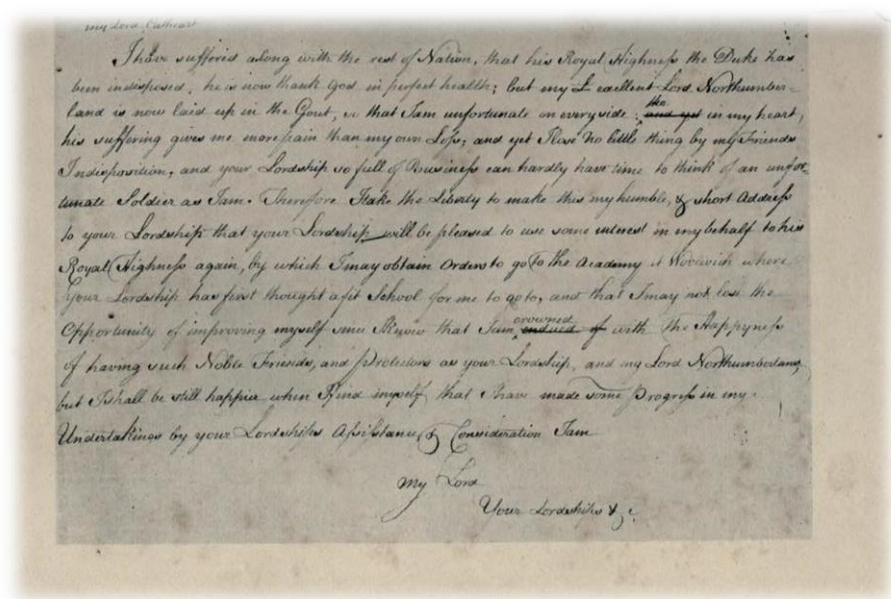 my Lord Cathcart
I have suffered along with the rest of Nation, that his Royal Highness the Duke has
been indisposed, he is now thank God in perfect health; but my L excellent Lord Northumber-
land is now laid up in the Gout, so that I am unfortunate on every side; the and yet in my heart,
his suffering gives me more pain than my own Loss, and yet I lose no little thing by my Friends
Indisposition, and your Lordship so full of Business can hardly have time to think of an unfor-
tunate Soldier as I am. Therefore I take the Liberty to make this my humble, & short Address
to your Lordship that your Lordship will be pleased to use some interest in my behalf to his
Royal Highness again, by which I may obtain Orders to go to the Academy at Woolwich where
your Lordship has first thought a fit School for me to go to, and that I may not lose the
Opportunity of improving myself since I know that I am crowned endued of with the Happyness
of having such Noble Friends, and Protectors as your Lordship, and my Lord Northumberland,
but I shall be still happier when I find myself that I have made some Progress in my
Undertakings by your Lordships Assistance & Consideration I am
My Lord
Your Lordships & c